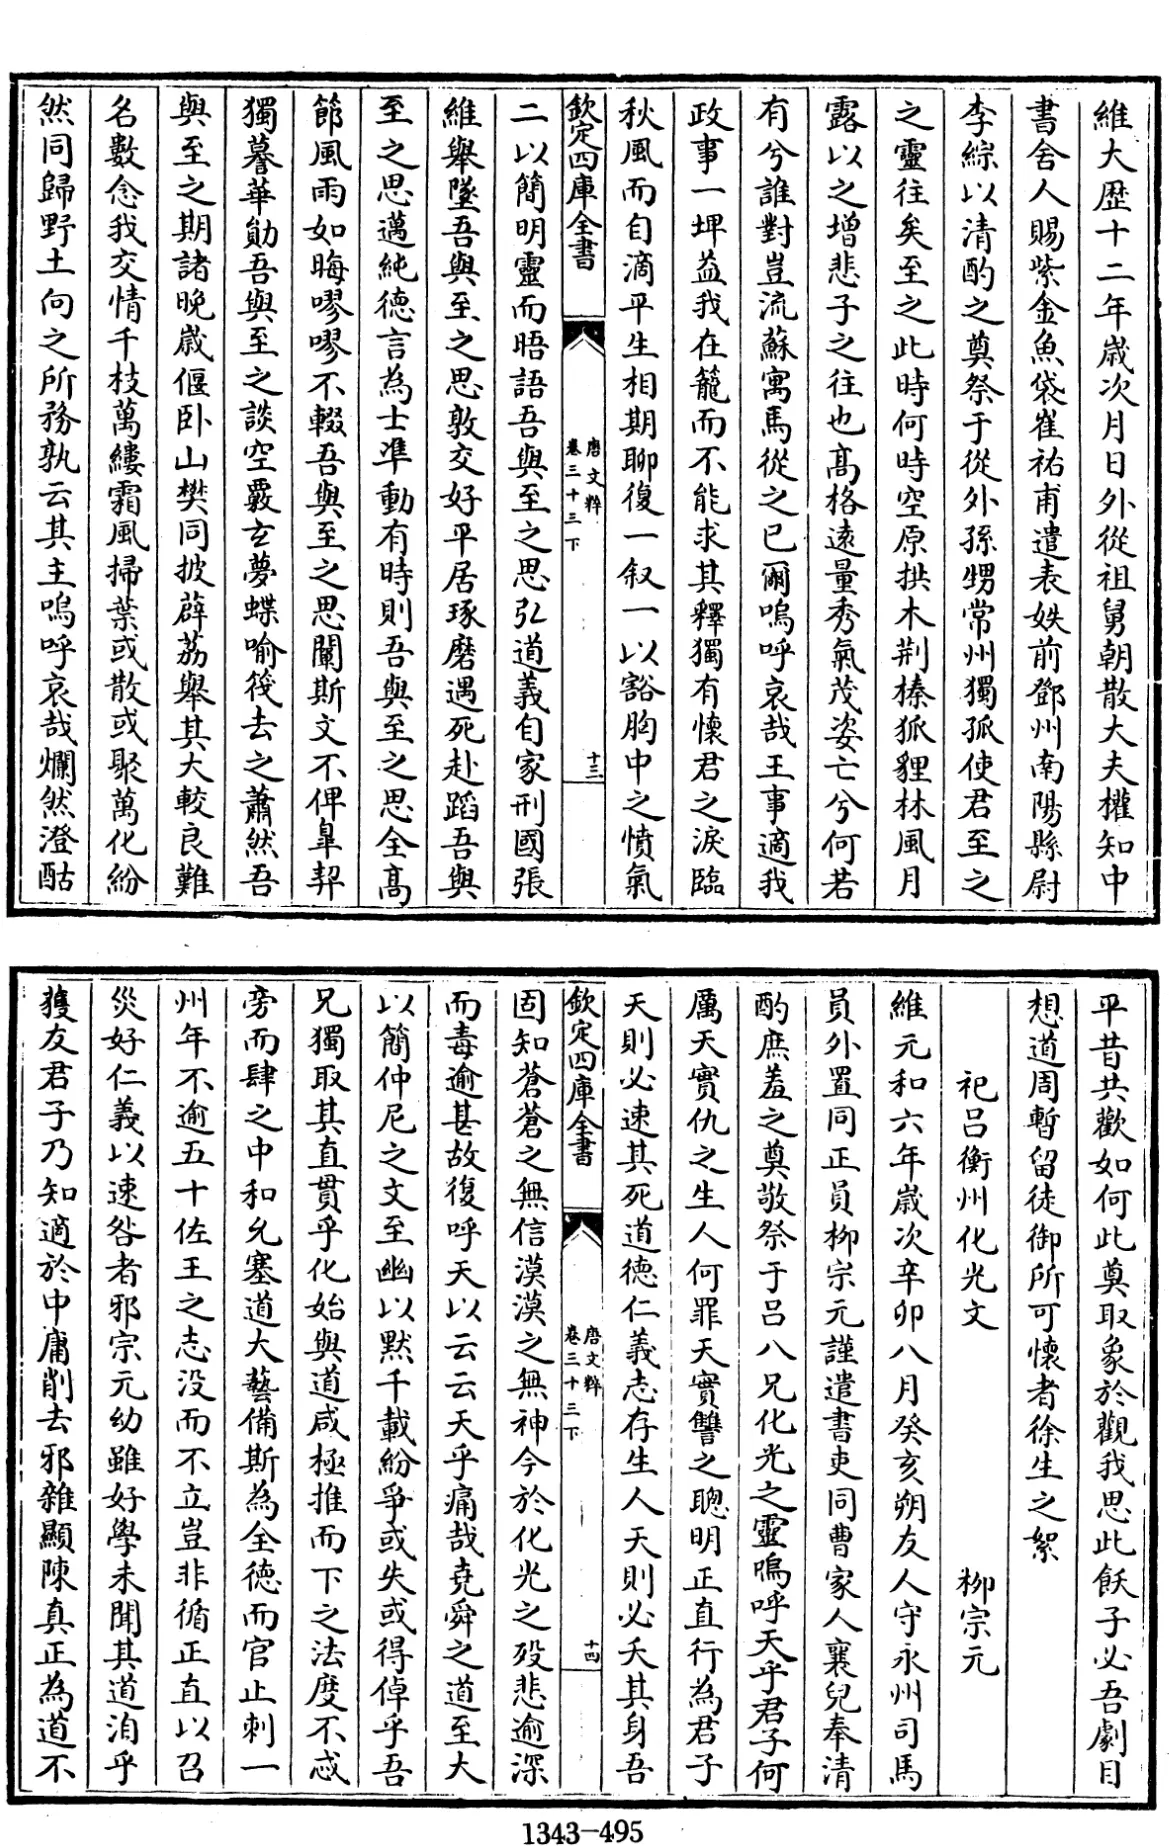 維大歴十二年嵗次月日外從祖舅朝散大夫權知中
書舍人賜紫金魚袋崔祐甫遣表姪前鄧州南陽縣尉
李綜以清酌之奠祭于從外孫甥常州獨孤使君至之
之靈往矣至之此時何時空原拱木荆榛狐貍林風月
露以之增悲子之往也髙格逺量秀氣茂姿亡兮何若
有兮誰對豈流蘇寓馬從之已爾嗚呼哀哉王事適我
政事一埤益我在籠而不能求其釋獨有懐君之淚臨
秋風而自滴平生相期聊復一叙一以豁胷中之憤氣
欽定四庫全書
唐文粹
卷三十三下
十三
二以簡明靈而晤語吾與至之思弘道義自家刑國張
維舉墜吾與至之思敦交好平居琢磨遇死赴蹈吾與
至之思邁純德言為士凖動有時則吾與至之思全髙
節風雨如晦嘐嘐不輟吾與至之思闡斯文不俾臯契
獨謩華勛吾與至之談空覈玄夢蝶喻筏去之蕭然吾
與至之期諸晚嵗偃卧山樊同披薜荔舉其大較良難
名數念我交情千枝萬縷霜風掃葉或散或聚萬化紛
然同歸野土向之所務孰云其主嗚呼哀哉爛然澄酤
平昔共歡如何此奠取象於觀我思此飫子必吾劇目
想道周暫留徒御所可懐者徐生之絮
祀吕衡州化光文 柳宗元
維元和六年嵗次辛卯八月癸亥朔友人守永州司馬
員外置同正員栁宗元謹遣書吏同曹家人襄兒奉清
酌庶羞之奠敬祭于吕八兄化光之靈嗚呼天乎君子何
厲天實仇之生人何罪天實讐之聰明正直行為君子
天則必速其死道德仁義志存生人天則必夭其身吾
欽定四庫全書
唐文粹
卷三十三下
十四
固知蒼蒼之無信漠漠之無神今於化光之殁悲逾深
而毒逾甚故復呼天以云云天乎痛哉堯舜之道至大
以簡仲尼之文至幽以黙千載紛爭或失或得倬乎吾
兄獨取其直貫乎化始與道咸極推而下之法度不忒
旁而肆之中和允塞道大藝備斯為全德而官止刺一
州年不逾五十佐王之志没而不立豈非循正直以召
災好仁義以速咎者邪宗元幼雖好學未聞其道洎乎
獲友君子乃知適於中庸削去邪雜顯陳真正為道不
1343-495